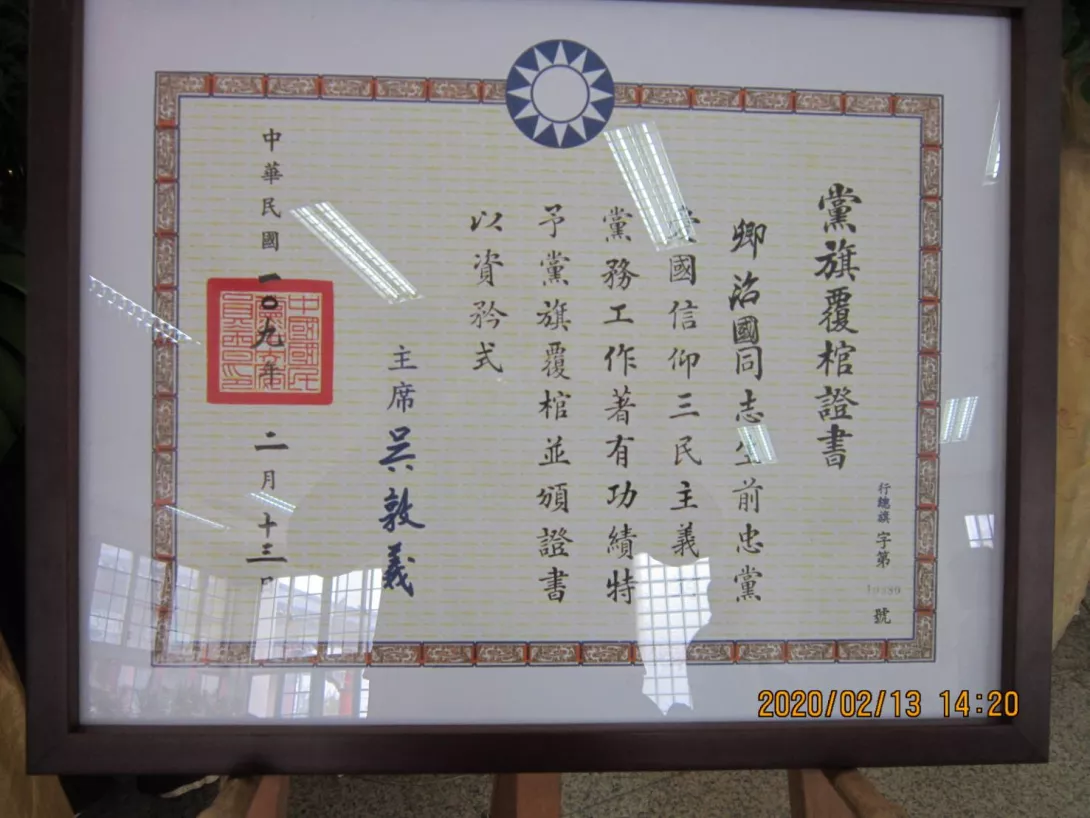 黨旗覆棺證書
行總旗字第10889號
卿治國同志生前忠黨
愛國信仰三民主義
黨務工作著有功績特
予黨旗覆棺並頒證書
以資矜式
主席吳敦義
中華民國一〇九年二月十三日
2020/02/13 14:20